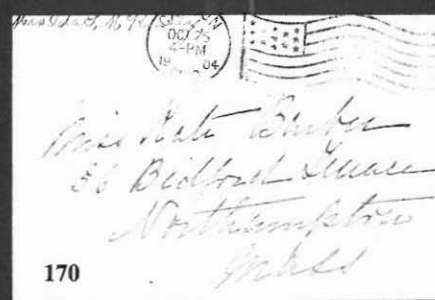 OCT 25
4-PM
19 04
Miss Kate Barber
56 Bedford Terrace
Northampton
Mass
170